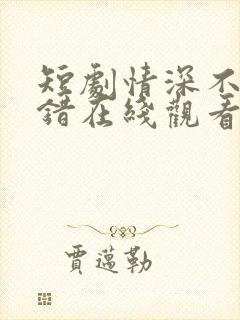 短劇情深不
錯在綫觀看
賈邁勒